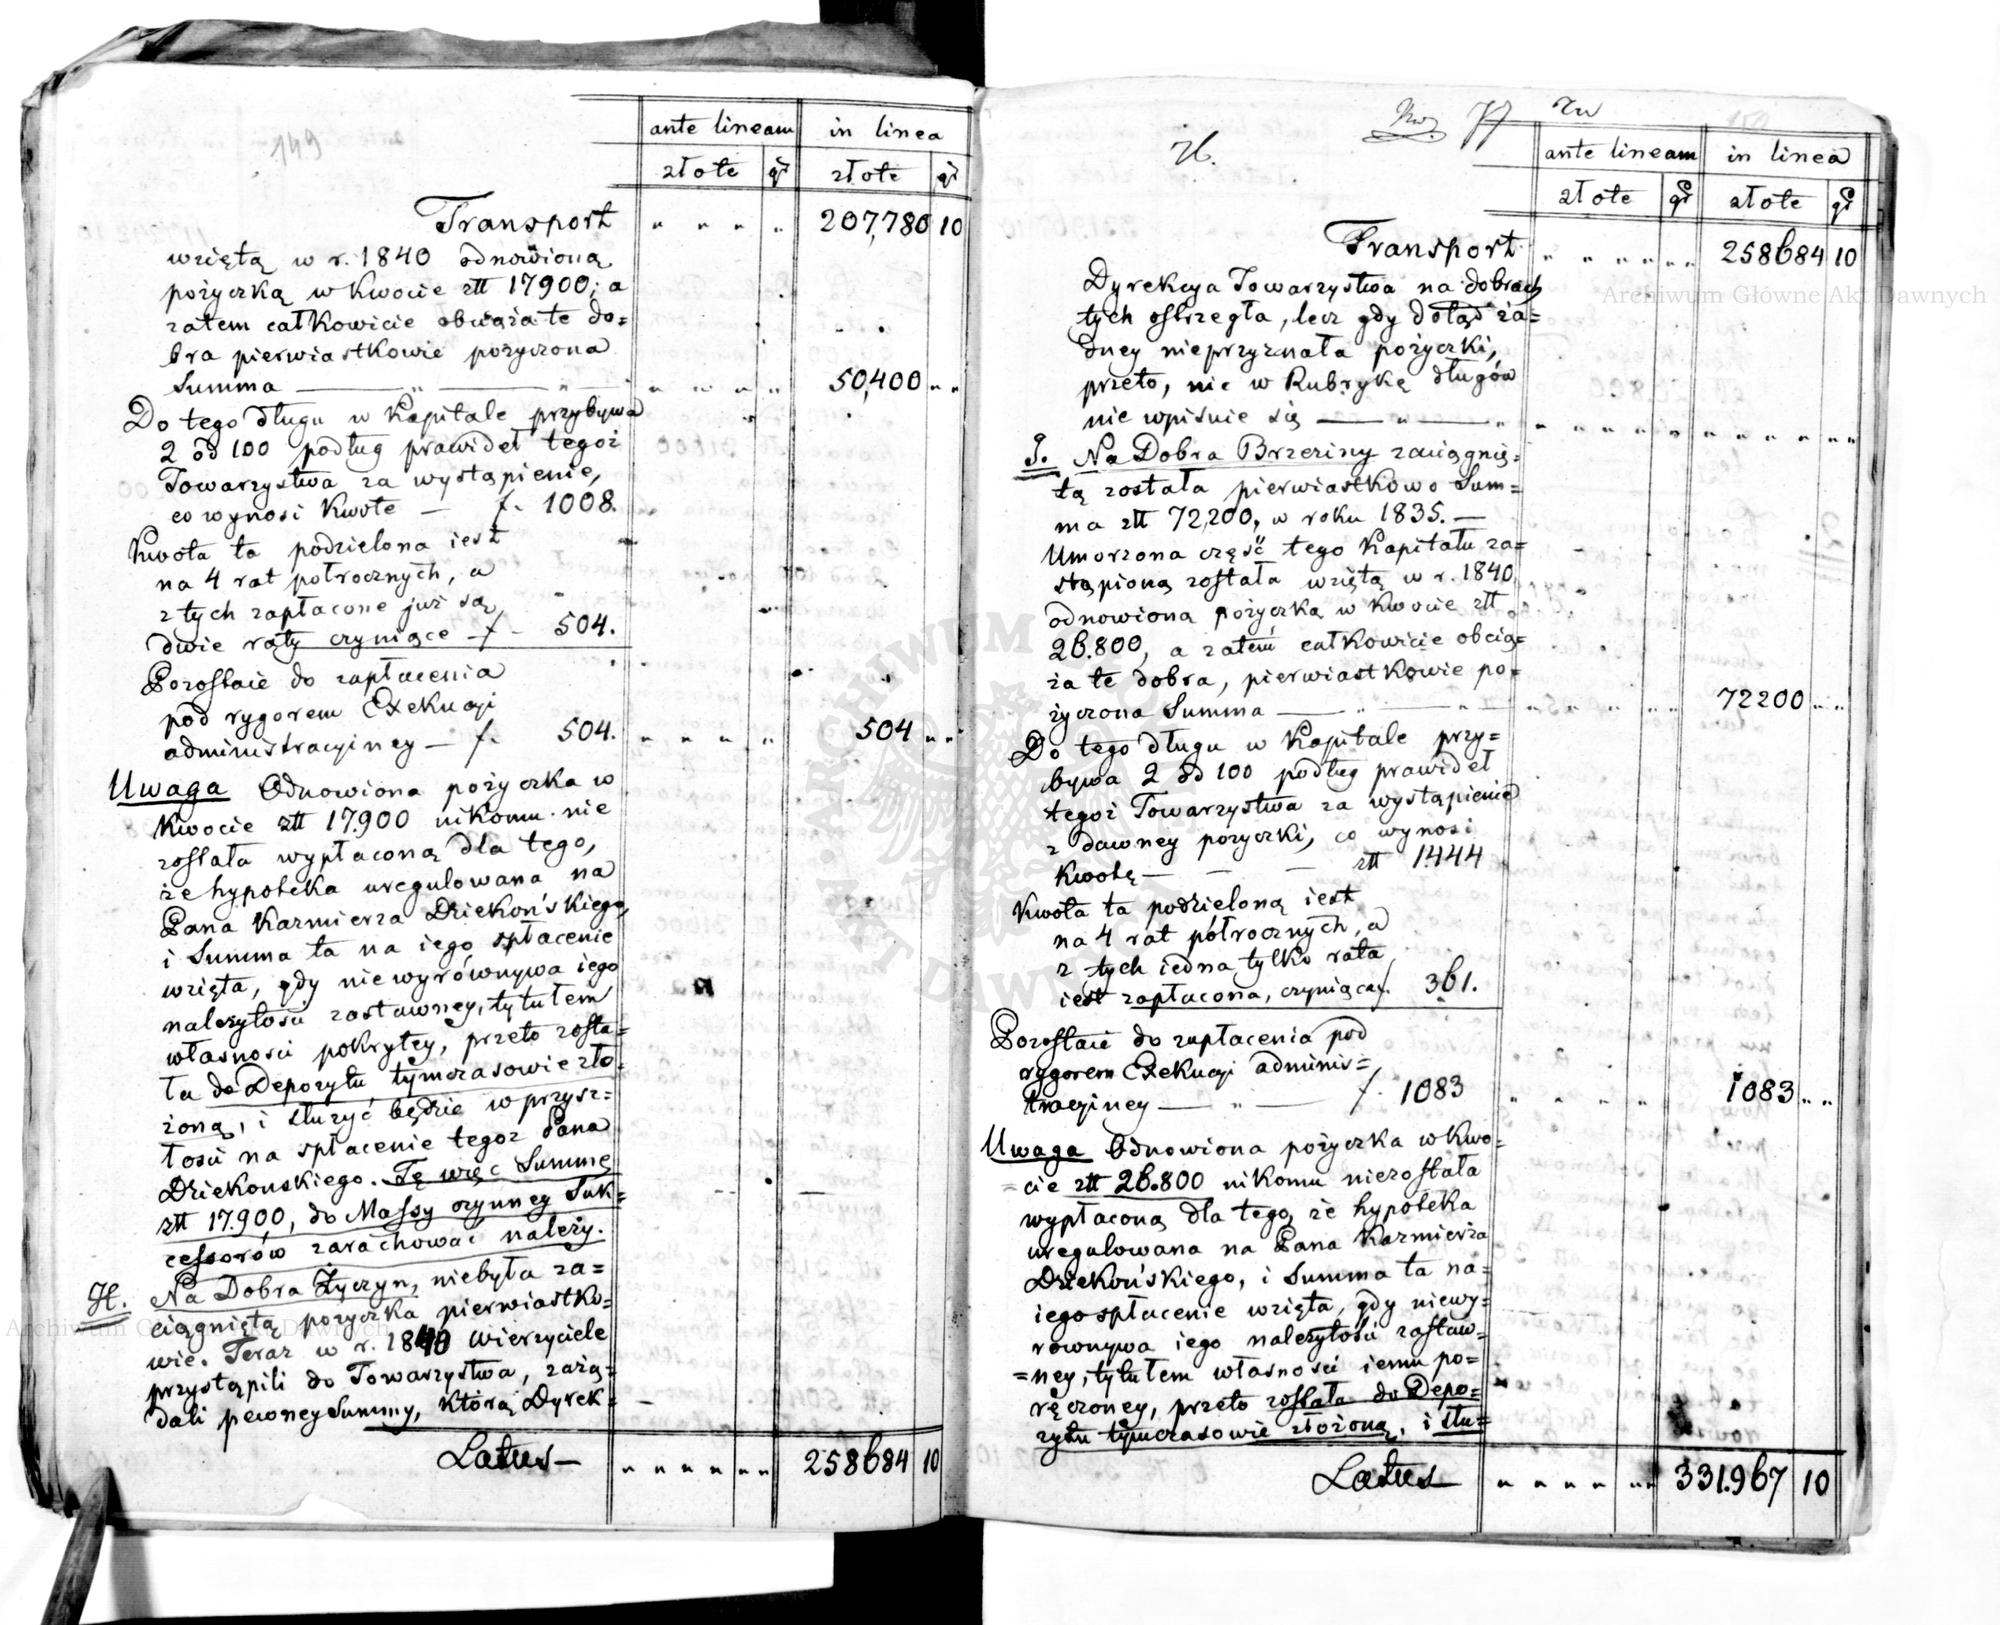 149
ante lineam | in linea
złote | gr | złote | gr
Transport " " " " 207,780 10
wziętą w r. 1840 odnowioną
pożyczką w kwocie złt 17900; a
zatem całkowicie obciąża te do=
bra pierwiastkowie pożyczona
Summa — " — " " " " " 50,400 " "
Do tego długu w Kapitale przybywa
2 od 100 podług prawideł tegoż
Towarzystwa za wystąpienie,
co wynosi kwotę — f. 1008.
Kwota ta podzielona iest
na 4 rat półrocznych, a
z tych zapłacone już są
dwie raty czyniące — f - 504.
Pozostaie do zapłacenia
pod rygorem Exekucyi
administracyiney — f. 504. " " " " 504 " "
Uwaga Odnowiona pożyczka w
Kwocie złt 17.900 nikomu nie
została wypłaconą dla tego,
że hypoteka uregulowana na
Pana Kazmierza Dziekońskiego,
i Summa ta na iego spłacenie
wzięta, gdy niewyrównywa iego
należytości zastawney, tytułem
własności pokrytey, przeto zosta=
ła do Depozytu tymczasowie zło=
żoną, i służyć będzie w przysz=
łości na spłacenie tegoż Pana
Dziekonskiego. Tę więc Summę
złt 17.900, do Massy czynney Suk=
cessorów zarachować należy.
H. Na Dobra Życzyn, niebyła za=
ciągniętą pożyczka pierwiastko=
wie. Teraz w r. 1840 wierzyciele
przystąpili do Towarzystwa, zażą=
dali pewney Summy, którą Dyrek=
Latus — " " " " " " 258684 10
76.
150
ante lineam | in linea
złote | gr | złote | gr
Transport " " " " " " 258684 10
Dyrekcya Towarzystwa na dobrach
tych ostrzegła, lecz gdy dotąd ża=
dney nieprzyznała pożyczki,
przeto, nic w Rubrykę długów
nie wpisuie się — " — " " " " " " " " " "
J. Na Dobra Brzeziny zaciągnię=
tą została pierwiastkowo Sum=
ma złt 72,200, w roku 1835. —
Umorzona część tego Kapitału za=
stąpioną została wziętą w r. 1840
odnowioną pożyczką w kwocie złt
26.800, a zatem całkowicie obcią=
ża te dobra, pierwiastkowie po=
życzona Summa — " — " " " " " 72200 " "
Do tego długu w Kapitale przy=
bywa 2 od 100 podług prawideł
tegoż Towarzystwa za wystąpienie
z dawney pożyczki, co wynosi
Kwotę — — — złt 1444
Kwota ta podzieloną iest
na 4 rat półrocznych, a
z tych iedna tylko rata
iest zapłacona, czyniąca f. 361.
Pozostaie do zapłacenia pod
rygorem Exekucyi adminis=
tracyiney — " — f. 1083 " " " " " 1083 " "
Uwaga Odnowiona pożyczka w kwo=
cie złt 26.800 nikomu niezostała
wypłaconą dla tego, że hypoteka
uregulowana na Pana Kazmierza
Dziekońskiego, i Summa ta na=
iego spłacenie wzięta, gdy niewy=
równywa iego należytości zastaw=
=ney, tytułem własności iemu po=
ręczoney, przeto została do Depo=
zytu tymczasowie złożoną, i słu=
Latus " " " " " " 331.967 10
Archiwum Główne Akt Dawnych
Archiwum Główne Akt Dawnych
ARCHIWUM GŁÓWNE AKT DAWNYCH